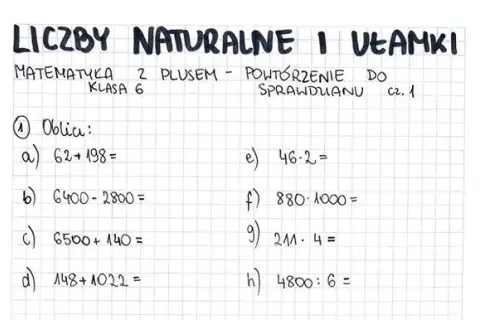 LICZBY NATURALNE I UŁAMKI
MATEMATYKA Z PLUSEM - POWTÓRZENIE DO
KLASA 6 SPRAWDZIANU cz. 1
1 Oblicz:
a) 62+198=
b) 6400-2800=
c) 6500+140=
d) 148+1022=
e) 46·2=
f) 880·1000=
g) 211·4=
h) 4800:6=